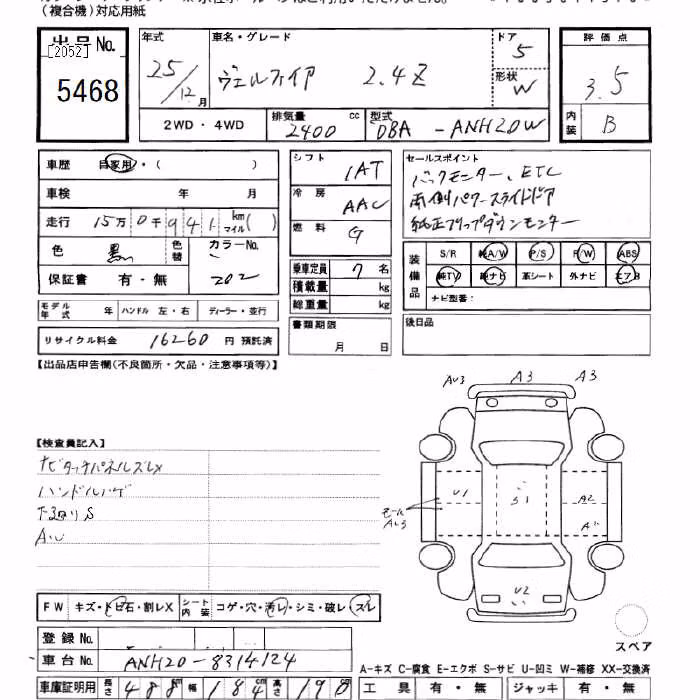 （複合機）対応用紙
出品No.
[2052]
5468
年式
25/12月
車名・グレード
ヴェルファイア 2.4Z
ドア
5
形状
W
評価点
3.5
内装
B
2WD・4WD
排気量
2400 cc
型式
DBA - ANH20W
車歴 自家用・（ ）
車検 年 月
走行 15万0千941 km マイル( )
色 黒 色替
カラーNo. 202
保証書 有・無
モデル年式 年 ハンドル 左・右 ディーラー・並行
リサイクル料金 16260 円 預託済
シフト IAT
冷房 AAC
燃料 G
乗車定員 7名
積載量 kg
総重量 kg
書類期限
月 日
セールスポイント
バックモニター、ETC
両側パワースライドドア
純正フリップダウンモニター
装備品
S/R 純A/W P/S P/W ABS
純TV 純ナビ 革シート 外ナビ エアB
ナビ型番：
後日品
【出品店申告欄（不良箇所・欠品・注意事項等）】
【検査員記入】
ナビタッチパネルズレX
ハンドルハゲ
下回りS
AU3 A3 A3
U1 S1 A2
モール
U2
FW キズ・トビ石・割レX
シート内装 コゲ・穴・汚レ・シミ・破レ・スレ
登録No.
車台No. ANH20-8314124
車庫証明用 長さ 488cm 幅 184cm 高さ 190
スペア
A-キズ C-腐食 E-エクボ S-サビ U-凹ミ W-補修 XX-交換済
工具 有・無 ジャッキ 有・無